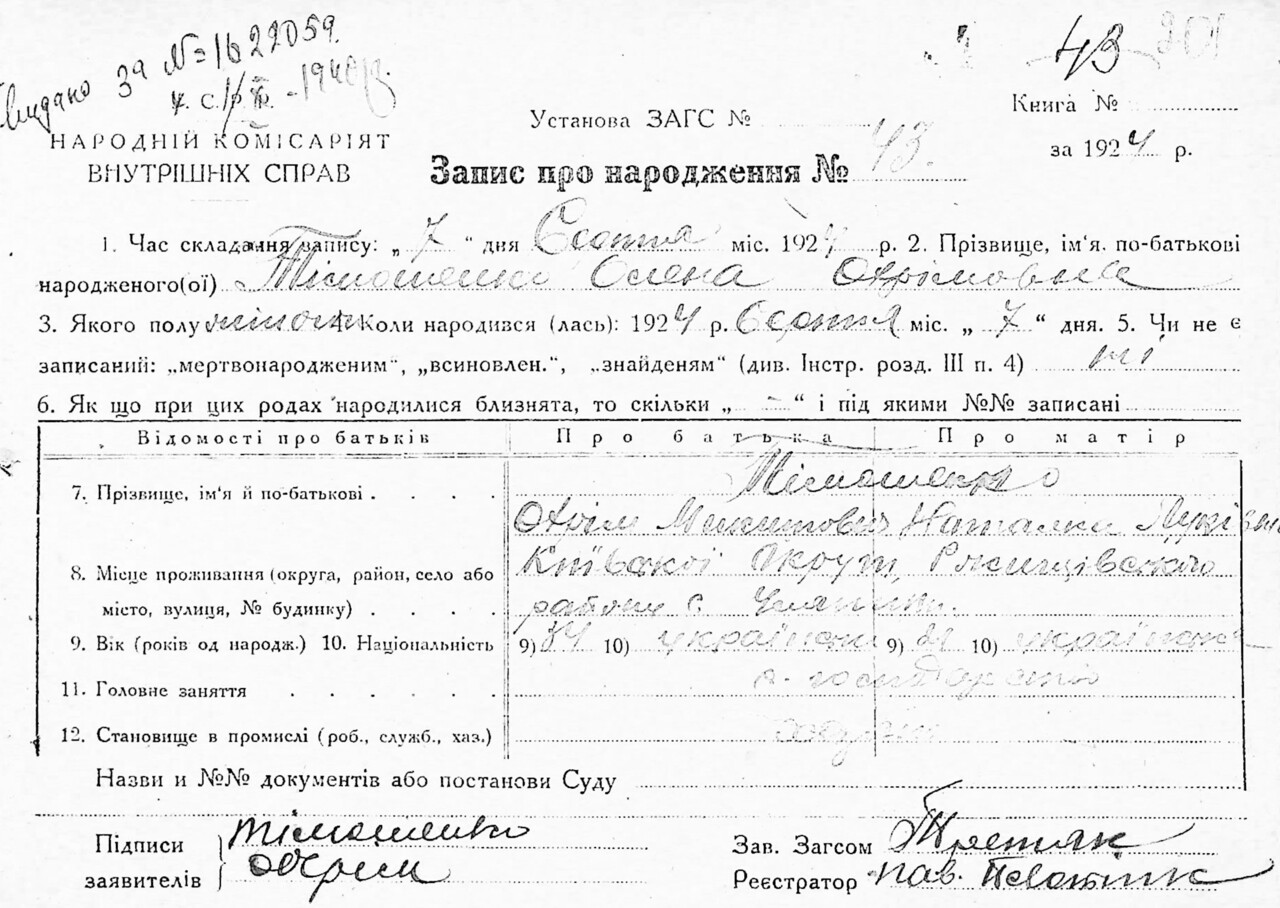 Видано за №1622059.
У. С. Р. Р. 1940 р.
НАРОДНІЙ КОМІСАРІЯТ
ВНУТРІШНІХ СПРАВ
Установа ЗАГС №
43
Книга №
за 1924 р.
Запис про народження № 43.
1. Час складання запису: „ 7 “ дня міс. 1924 р. 2. Прізвище, ім'я, по-батькові
народженого(ої) Тімошенко Олена Охрімовна
3. Якого полу жіноч 4. Коли народився (лась): 1924 р. міс. „ 7 “ дня. 5. Чи не є
записаний: „мертвонародженим“, „всиновлен.“, „знайденям“ (див. Інстр. розд. III п. 4) ні
6. Як що при цих родах народилися близнята, то скільки „ - “ і під якими №№ записані
Відомості про батьків Про батька Про матір
7. Прізвище, ім'я й по-батькові . . . . Тімошенко
Охрім Микитович Наталка
8. Місце проживання (округа, район, село або Київської Округи,
місто, вулиця, № будинку) . . . . району с.
9. Вік (років од народж.) 10. Національність 9) 10) українец 9) 10) українка
11. Головне заняття . . . . .
12. Становище в промислі (роб., служб., хаз.)
Назви и №№ документів або постанови Суду
Підписи
заявителів
Тімошенко
Охрім
Зав. Загсом Третяк
Реєстратор